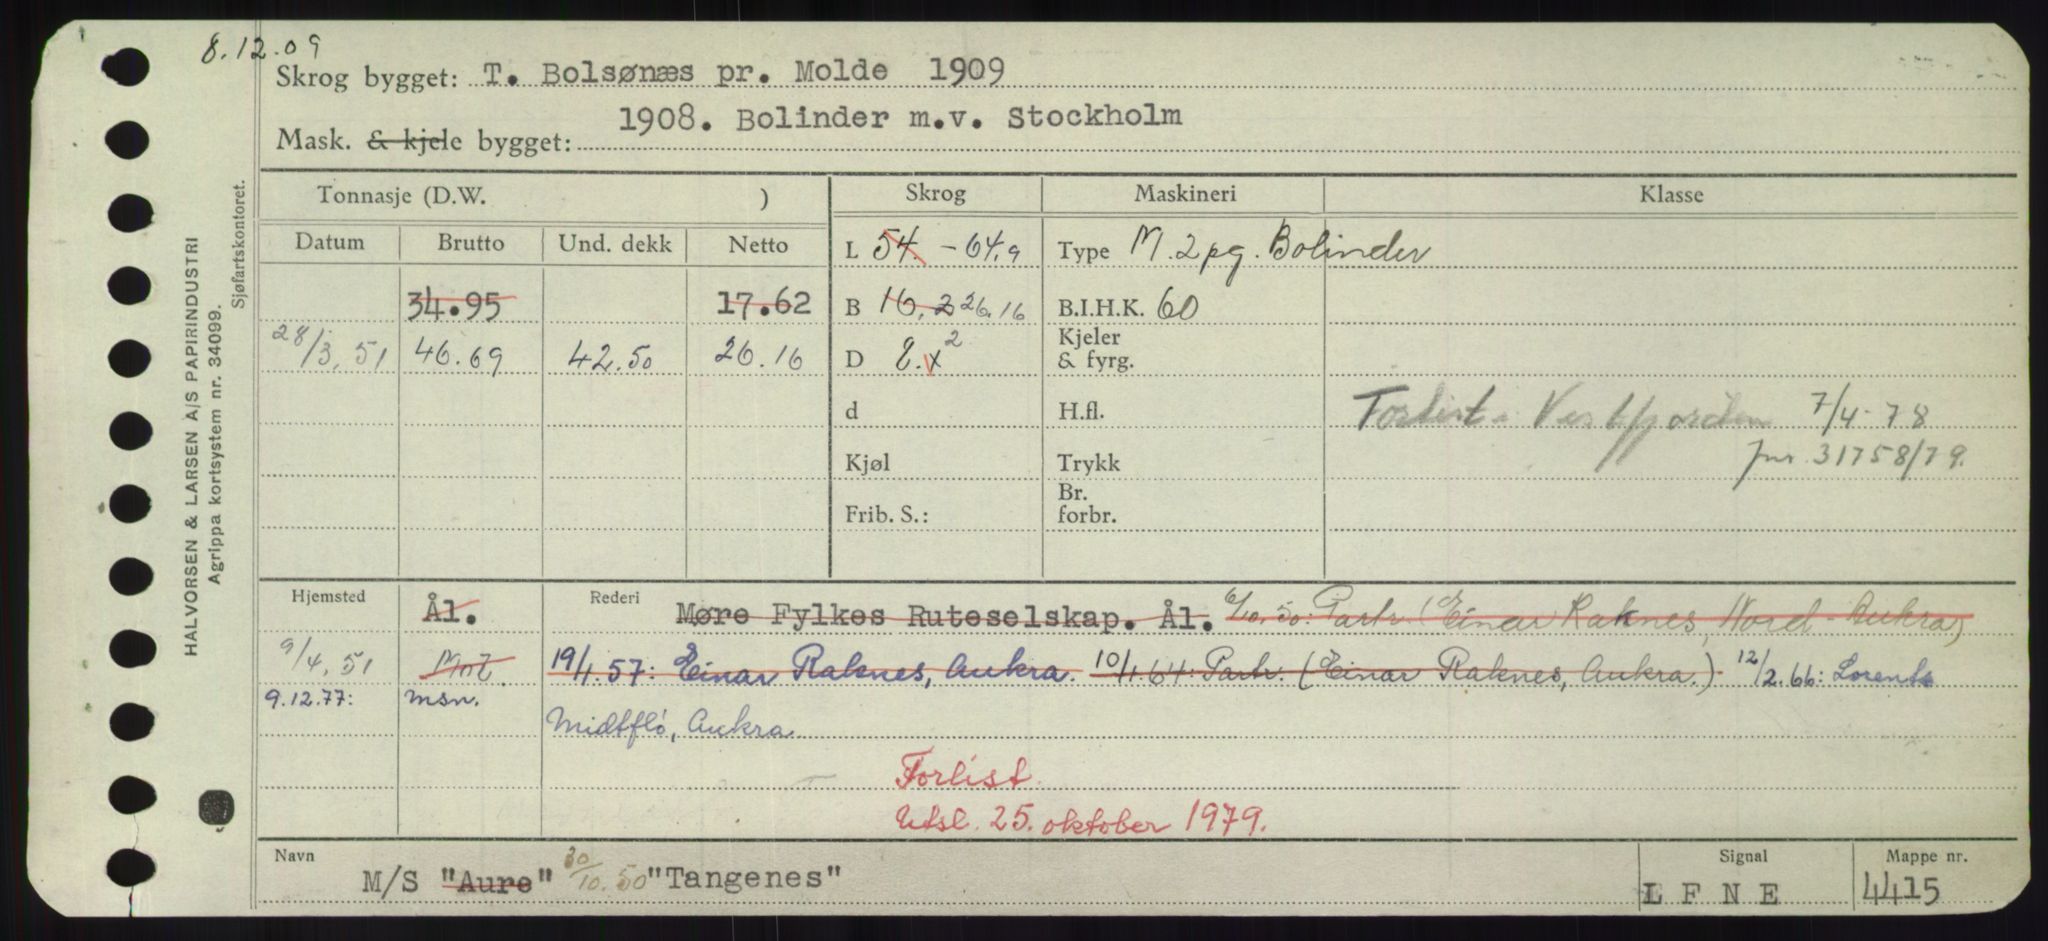 8.12.09
Skrog bygget: T. Bolsønæs pr. Molde 1909
1908. Bolinder m.v. Stockholm
Mask. & kjele bygget:
HALVORSEN & LARSEN A/S PAPIRINDUSTRI
Agrippa kortsystem nr. 34099.
Sjøfartskontoret.
Tonnasje (D.W. ) Skrog Maskineri Klasse
Datum Brutto Und. dekk Netto
L 54. - 64.9 Type M. 2 pg. Bolinder
34.95 17.62 B 16.2 26.16 B.I.H.K. 60
28/3.51 46.69 42.50 26.16 D 8.x2 Kjeler & fyrg.
d H.fl. Forlist i Vestfjorden 7/4-78
Kjøl Trykk jnr. 31758/79.
Frib. S.: Br. forbr.
Hjemsted Ål. Rederi Møre Fylkes Ruteselskap. Ål. Partr. (Einar Raknes, Nord-Aukra)
9/4.51 19/1.57: Einar Raknes, Aukra. 10/1.64: Partr. (Einar Raknes, Aukra.) 12/2.66: Lorents
9.12.77: msn. Midtflø, Aukra
Forlist.
Utsl. 25. oktober 1979.
Navn Signal Mappe nr.
M/S "Aure" 30/10.50 "Tangenes" L F N E 4415